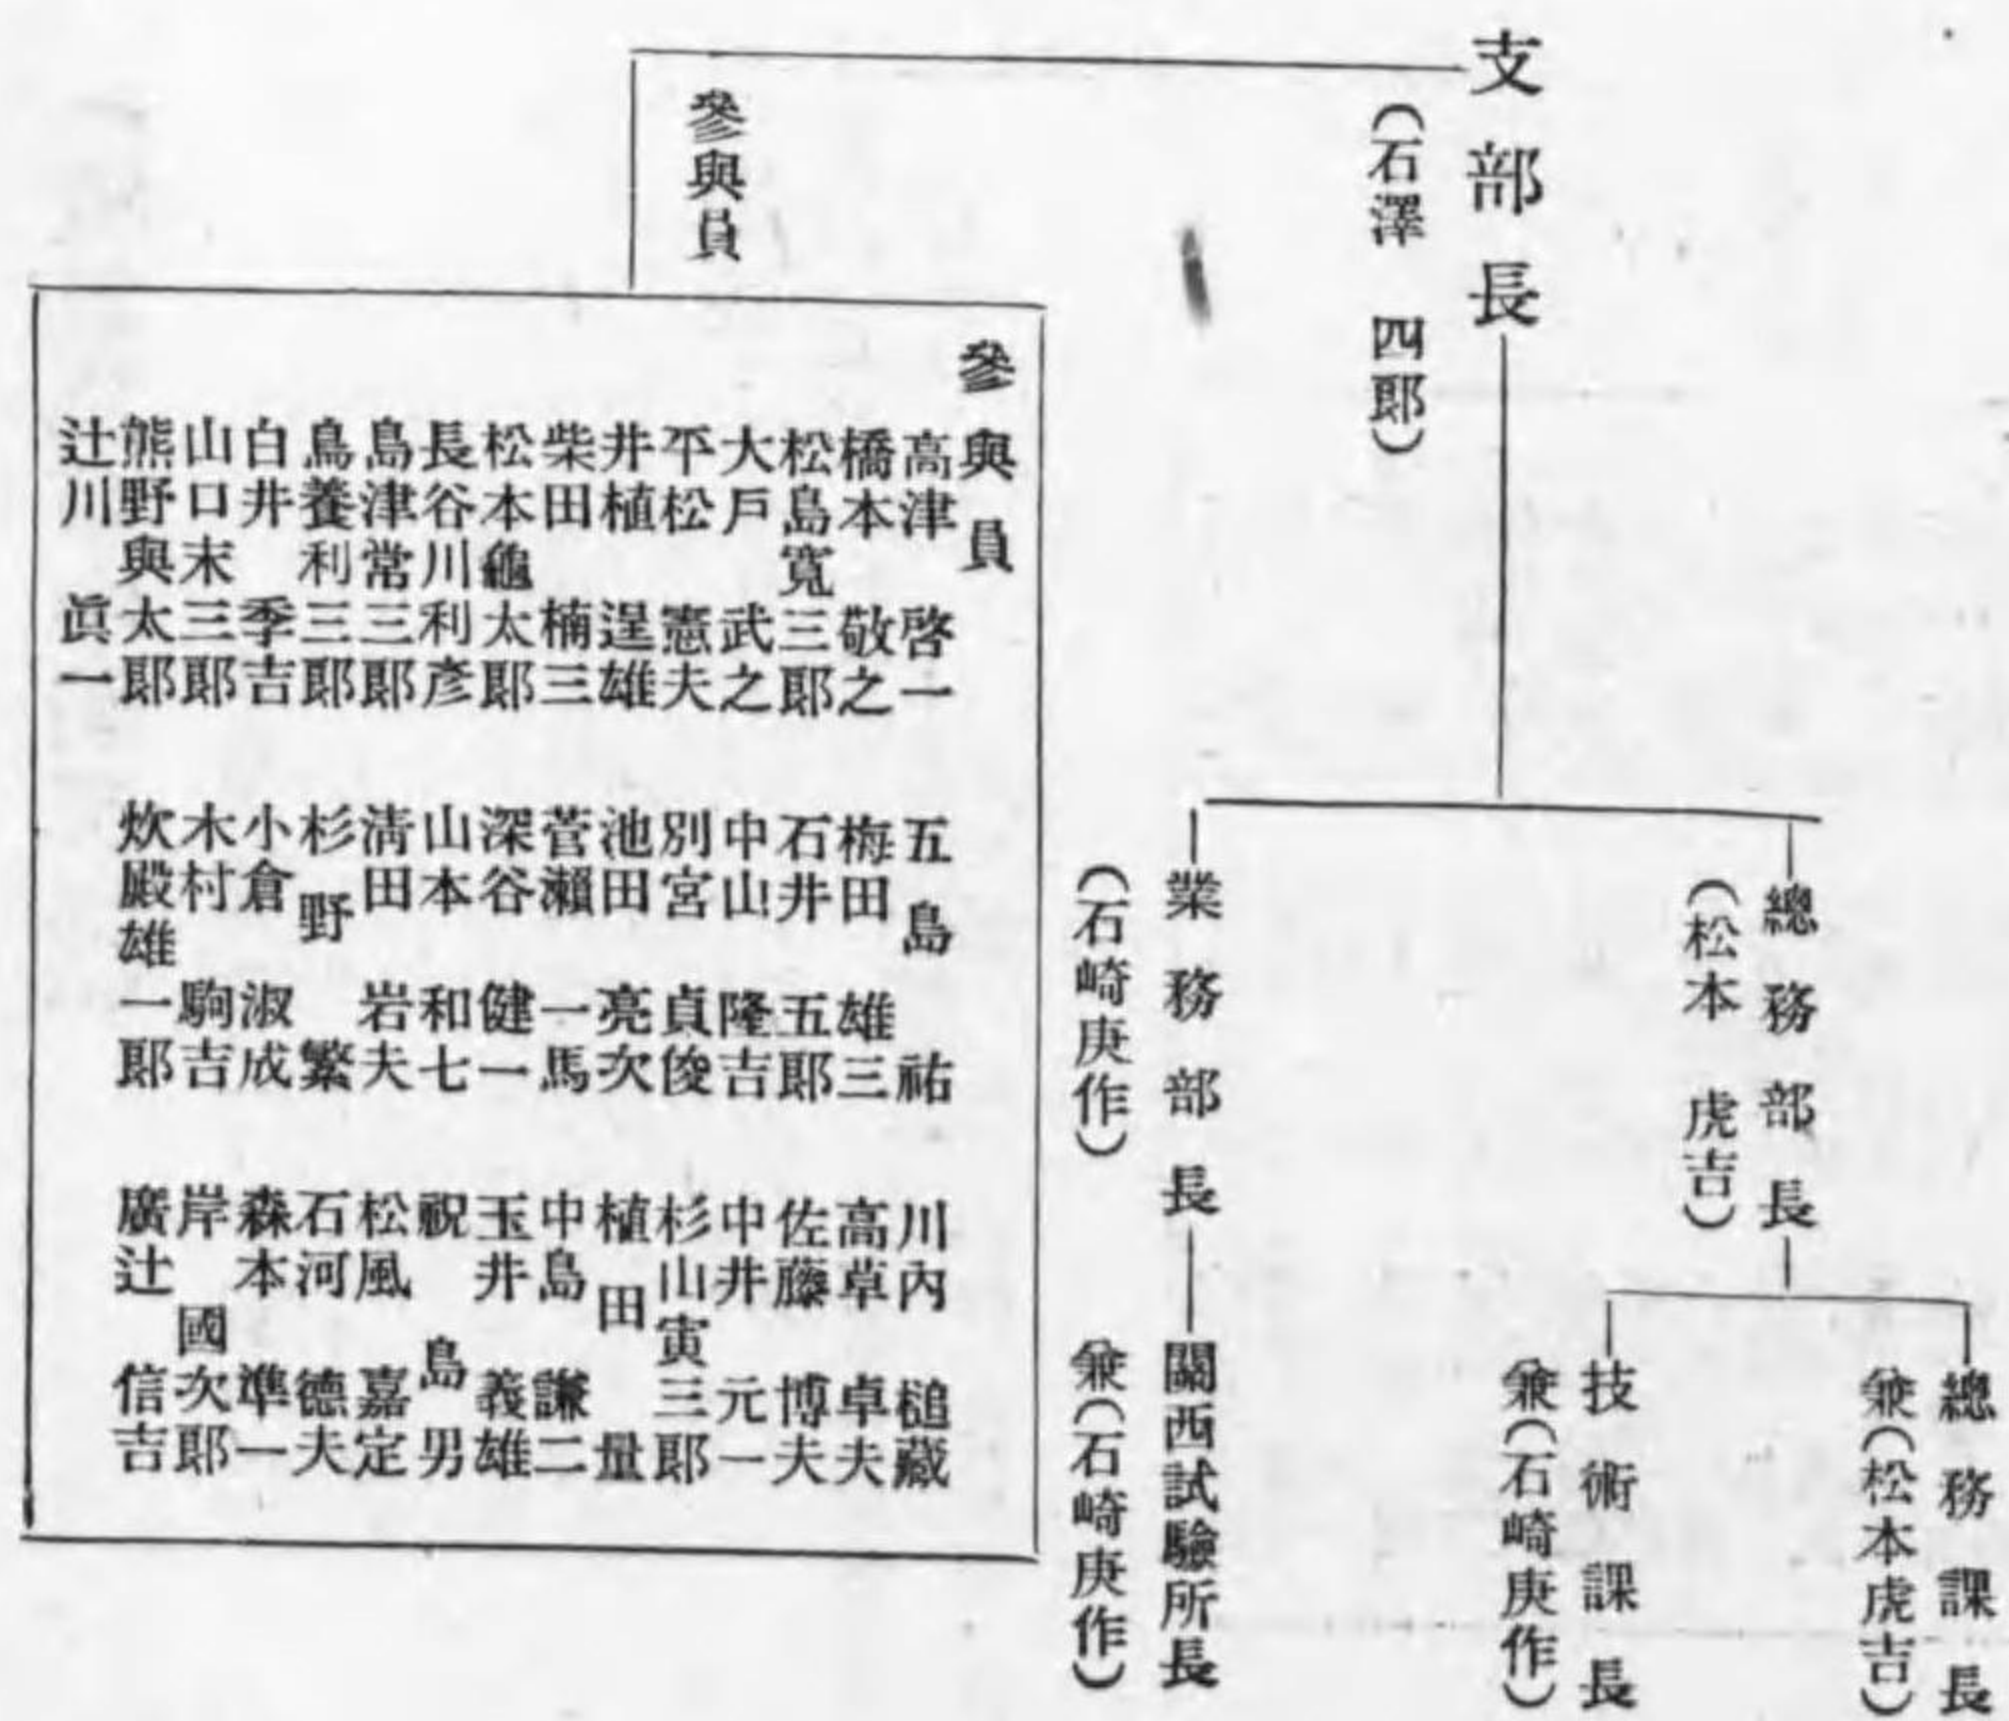 支部長
(石澤四郎)
總務部長
(松本虎吉)
總務課長
兼(松本虎吉)
技術課長
兼(石崎庚作)
業務部長
(石崎庚作)
關西試驗所長
兼(石崎庚作)
參與員
參與員
高津啓一
橋本敬之
松島寬三郞
大戶武之
平松憲夫
井植逞雄
柴田楠三
松本龜太郞
長谷川利彥
島津常三郞
鳥養利三郞
白井季吉
山口末三郞
熊野與太郞
辻川眞一
五島祐
梅田雄三
石井五郞
中山隆吉
別宮貞俊
池田亮次
菅瀨一馬
深谷健一
山本和七
淸田岩夫
杉野繁
小倉淑成
木村駒吉
炊殿雄一郞
川內槌藏
高草卓夫
佐藤博夫
中井元一
杉山寅三郞
植田量
中島謙二
玉井義雄
祝島男
松風嘉定
石河德夫
森本準一
岸國次郞
廣辻信吉